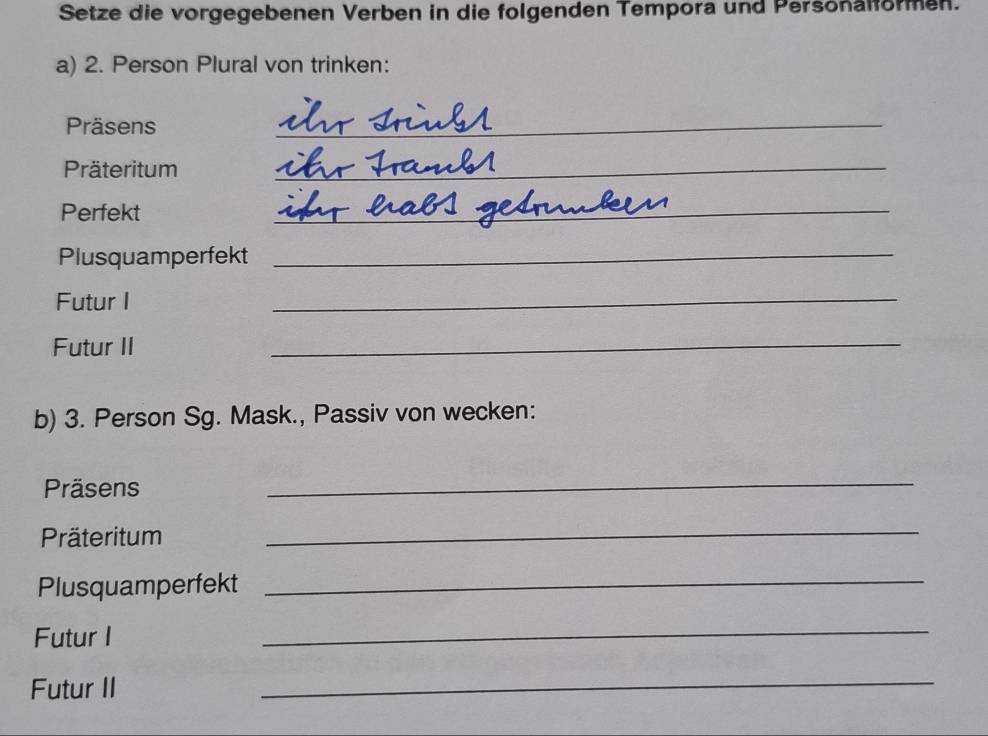 Setze die vorgegebenen Verben in die folgenden Tempora und Personalformen.
a) 2. Person Plural von trinken:
Präsens ihr trinkt
Präteritum ihr trankt
Perfekt ihr habt getrunken
Plusquamperfekt
Futur I
Futur II
b) 3. Person Sg. Mask., Passiv von wecken:
Präsens
Präteritum
Plusquamperfekt
Futur I
Futur II